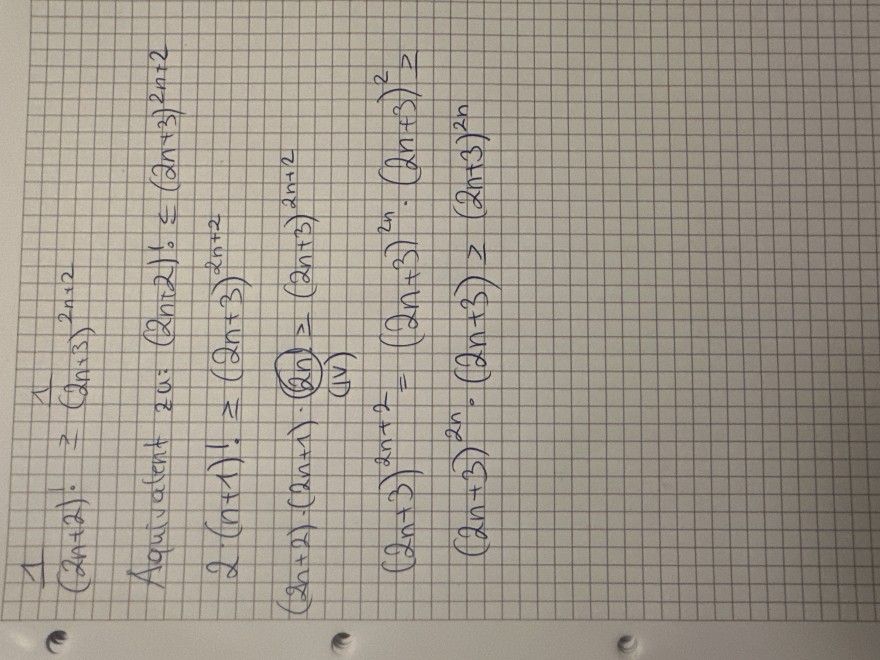 1/(2n+2)! ≥ 1/(2n+3)^{2n+2}
Aquivalent zu: (2n+2)! ≤ (2n+3)^{2n+2}
2·(n+1)! ≥ (2n+3)^{2n+2}
(2n+2)·(2n+1)·(2n)! ≥ (2n+3)^{2n+2}
(IV)
(2n+3)^{2n+2} = (2n+3)^{2n} · (2n+3)^2 ≥
(2n+3)^{2n} · (2n+3) ≥ (2n+3)^{2n}